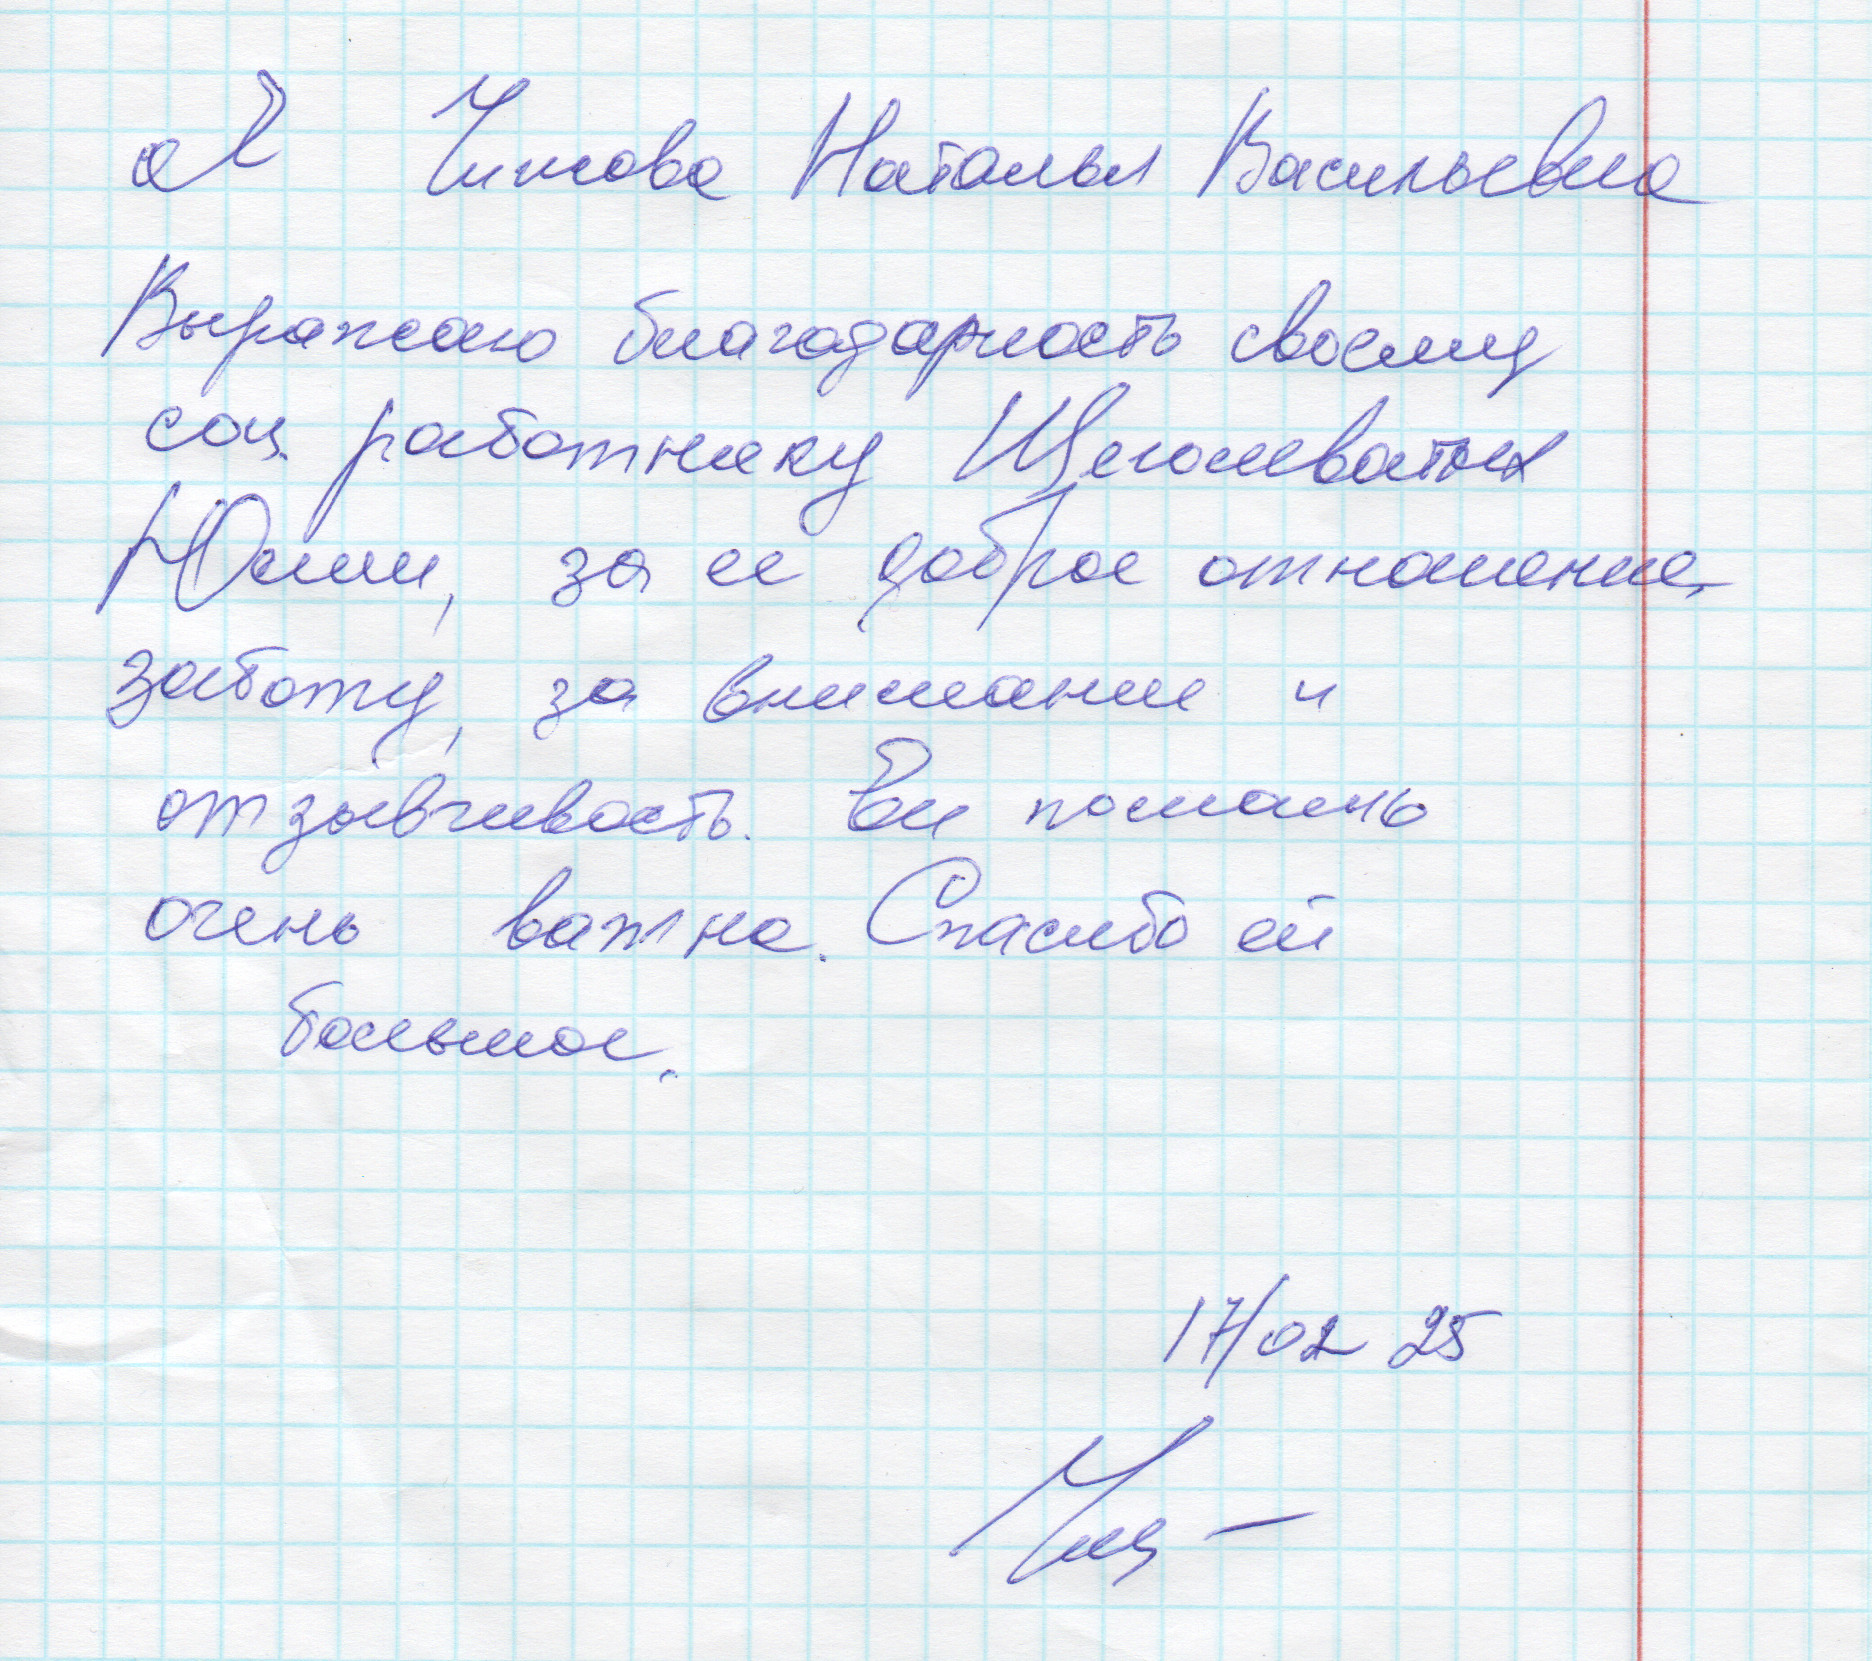 Я Чижова Наталья Васильевна
Выражаю благодарность своему
соц. работнику Щеголеватых
Юлии, за ее доброе отношение,
заботу, за внимание и
отзывчивость. Ее помощь
очень важна. Спасибо ей
большое.
17/02 25